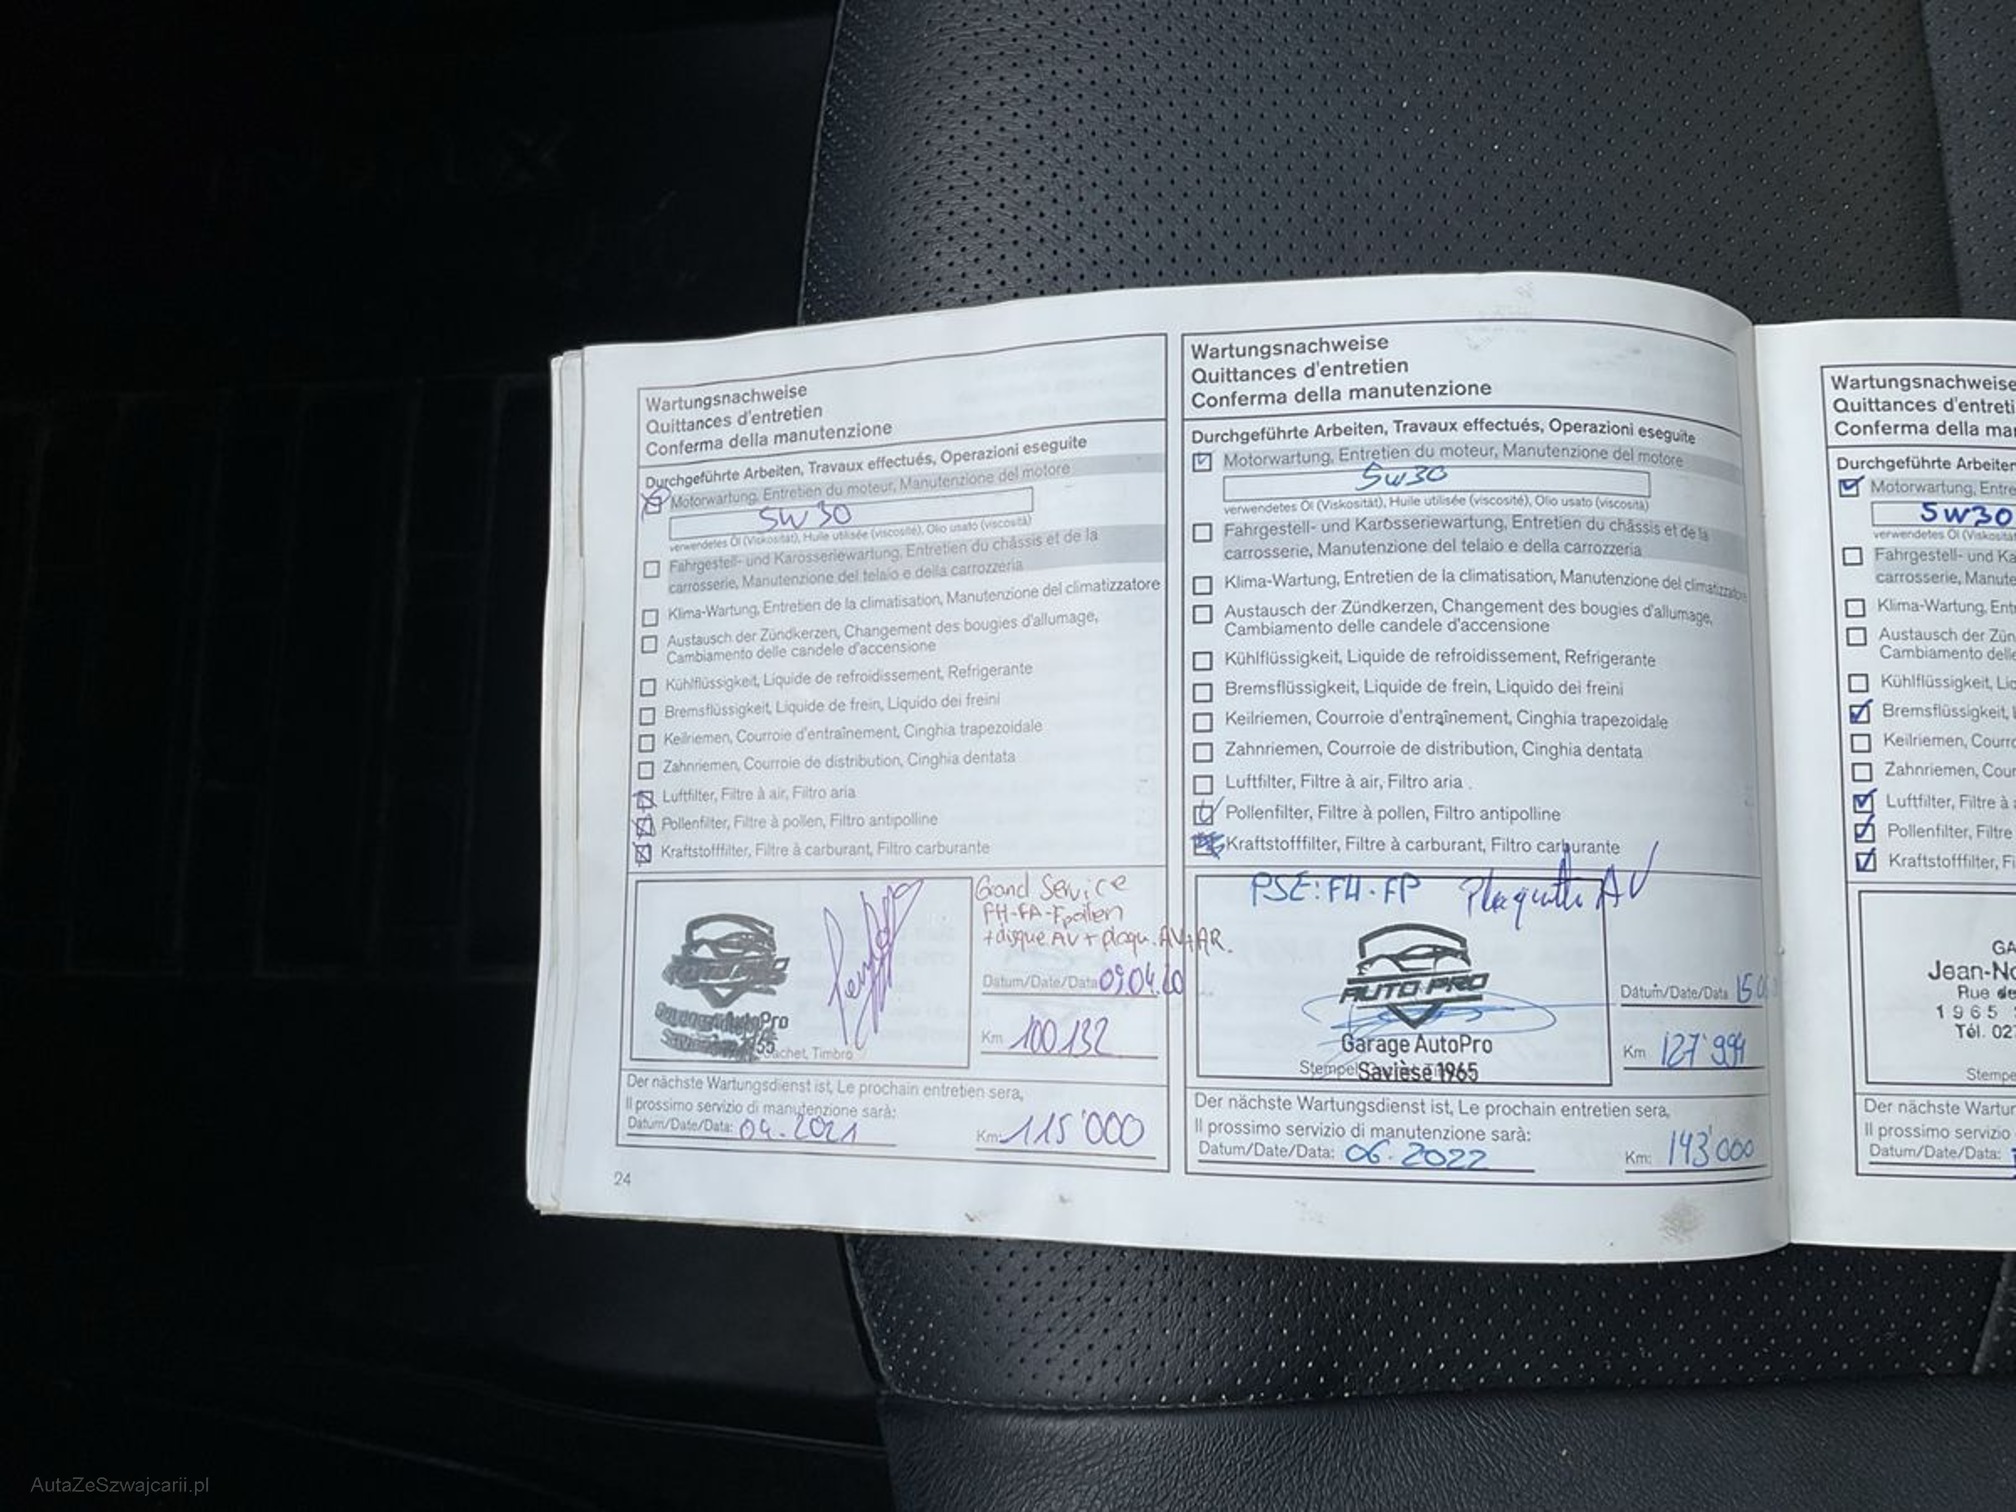 Wartungsnachweise
Quittances d'entretien
Conferma della manutenzione
Durchgeführte Arbeiten, Travaux effectués, Operazioni eseguite
Motorwartung, Entretien du moteur, Manutenzione del motore
5W30
verwendetes Öl (Viskosität), Huile utilisée (viscosité), Olio usato (viscosità)
Fahrgestell- und Karosseriewartung, Entretien du châssis et de la
carrosserie, Manutenzione del telaio e della carrozzeria
Klima-Wartung, Entretien de la climatisation, Manutenzione del climatizzatore
Austausch der Zündkerzen, Changement des bougies d'allumage,
Cambiamento delle candele d'accensione
Kühlflüssigkeit, Liquide de refroidissement, Refrigerante
Bremsflüssigkeit, Liquide de frein, Liquido dei freini
Keilriemen, Courroie d'entraînement, Cinghia trapezoidale
Zahnriemen, Courroie de distribution, Cinghia dentata
Luftfilter, Filtre à air, Filtro aria
Pollenfilter, Filtre à pollen, Filtro antipolline
Kraftstofffilter, Filtre à carburant, Filtro carburante
Grand Service
FH-FA-Fpollen
+disque AV + plaqu. AV+AR.
AUTO PRO
Garage AutoPro
Cachet, Timbro
Datum/Date/Data 09.04.20
Km 100132
Der nächste Wartungsdienst ist, Le prochain entretien sera,
Il prossimo servizio di manutenzione sarà:
Datum/Date/Data: 04.2021 Km: 115'000
24
Wartungsnachweise
Quittances d'entretien
Conferma della manutenzione
Durchgeführte Arbeiten, Travaux effectués, Operazioni eseguite
Motorwartung, Entretien du moteur, Manutenzione del motore
5W30
verwendetes Öl (Viskosität), Huile utilisée (viscosité), Olio usato (viscosità)
Fahrgestell- und Karosseriewartung, Entretien du châssis et de la
carrosserie, Manutenzione del telaio e della carrozzeria
Klima-Wartung, Entretien de la climatisation, Manutenzione del climatizzatore
Austausch der Zündkerzen, Changement des bougies d'allumage,
Cambiamento delle candele d'accensione
Kühlflüssigkeit, Liquide de refroidissement, Refrigerante
Bremsflüssigkeit, Liquide de frein, Liquido dei freini
Keilriemen, Courroie d'entraînement, Cinghia trapezoidale
Zahnriemen, Courroie de distribution, Cinghia dentata
Luftfilter, Filtre à air, Filtro aria
Pollenfilter, Filtre à pollen, Filtro antipolline
Kraftstofffilter, Filtre à carburant, Filtro carburante
PSE: FH-FP AV
AUTO PRO
Garage AutoPro
Stempel Savièse 1965
Datum/Date/Data 15.0
Km 127'994
Der nächste Wartungsdienst ist, Le prochain entretien sera,
Il prossimo servizio di manutenzione sarà:
Datum/Date/Data: 06.2022 Km: 143'000
Wartungsnachweise
Quittances d'entreti
Conferma della ma
Durchgeführte Arbeiten
Motorwartung, Entre
5W30
verwendetes Öl (Viskosität
Fahrgestell- und Ka
carrosserie, Manute
Klima-Wartung, Ent
Austausch der Zün
Cambiamento delle
Kühlflüssigkeit, Liq
Bremsflüssigkeit, L
Keilriemen, Courro
Zahnriemen, Cour
Luftfilter, Filtre à a
Pollenfilter, Filtre
Kraftstofffilter, Fi
GA
Jean-No
Rue de
1965
Tél. 02
Stempe
Der nächste Wartun
Il prossimo servizio
Datum/Date/Data:
AutaZeSzwajcarii.pl